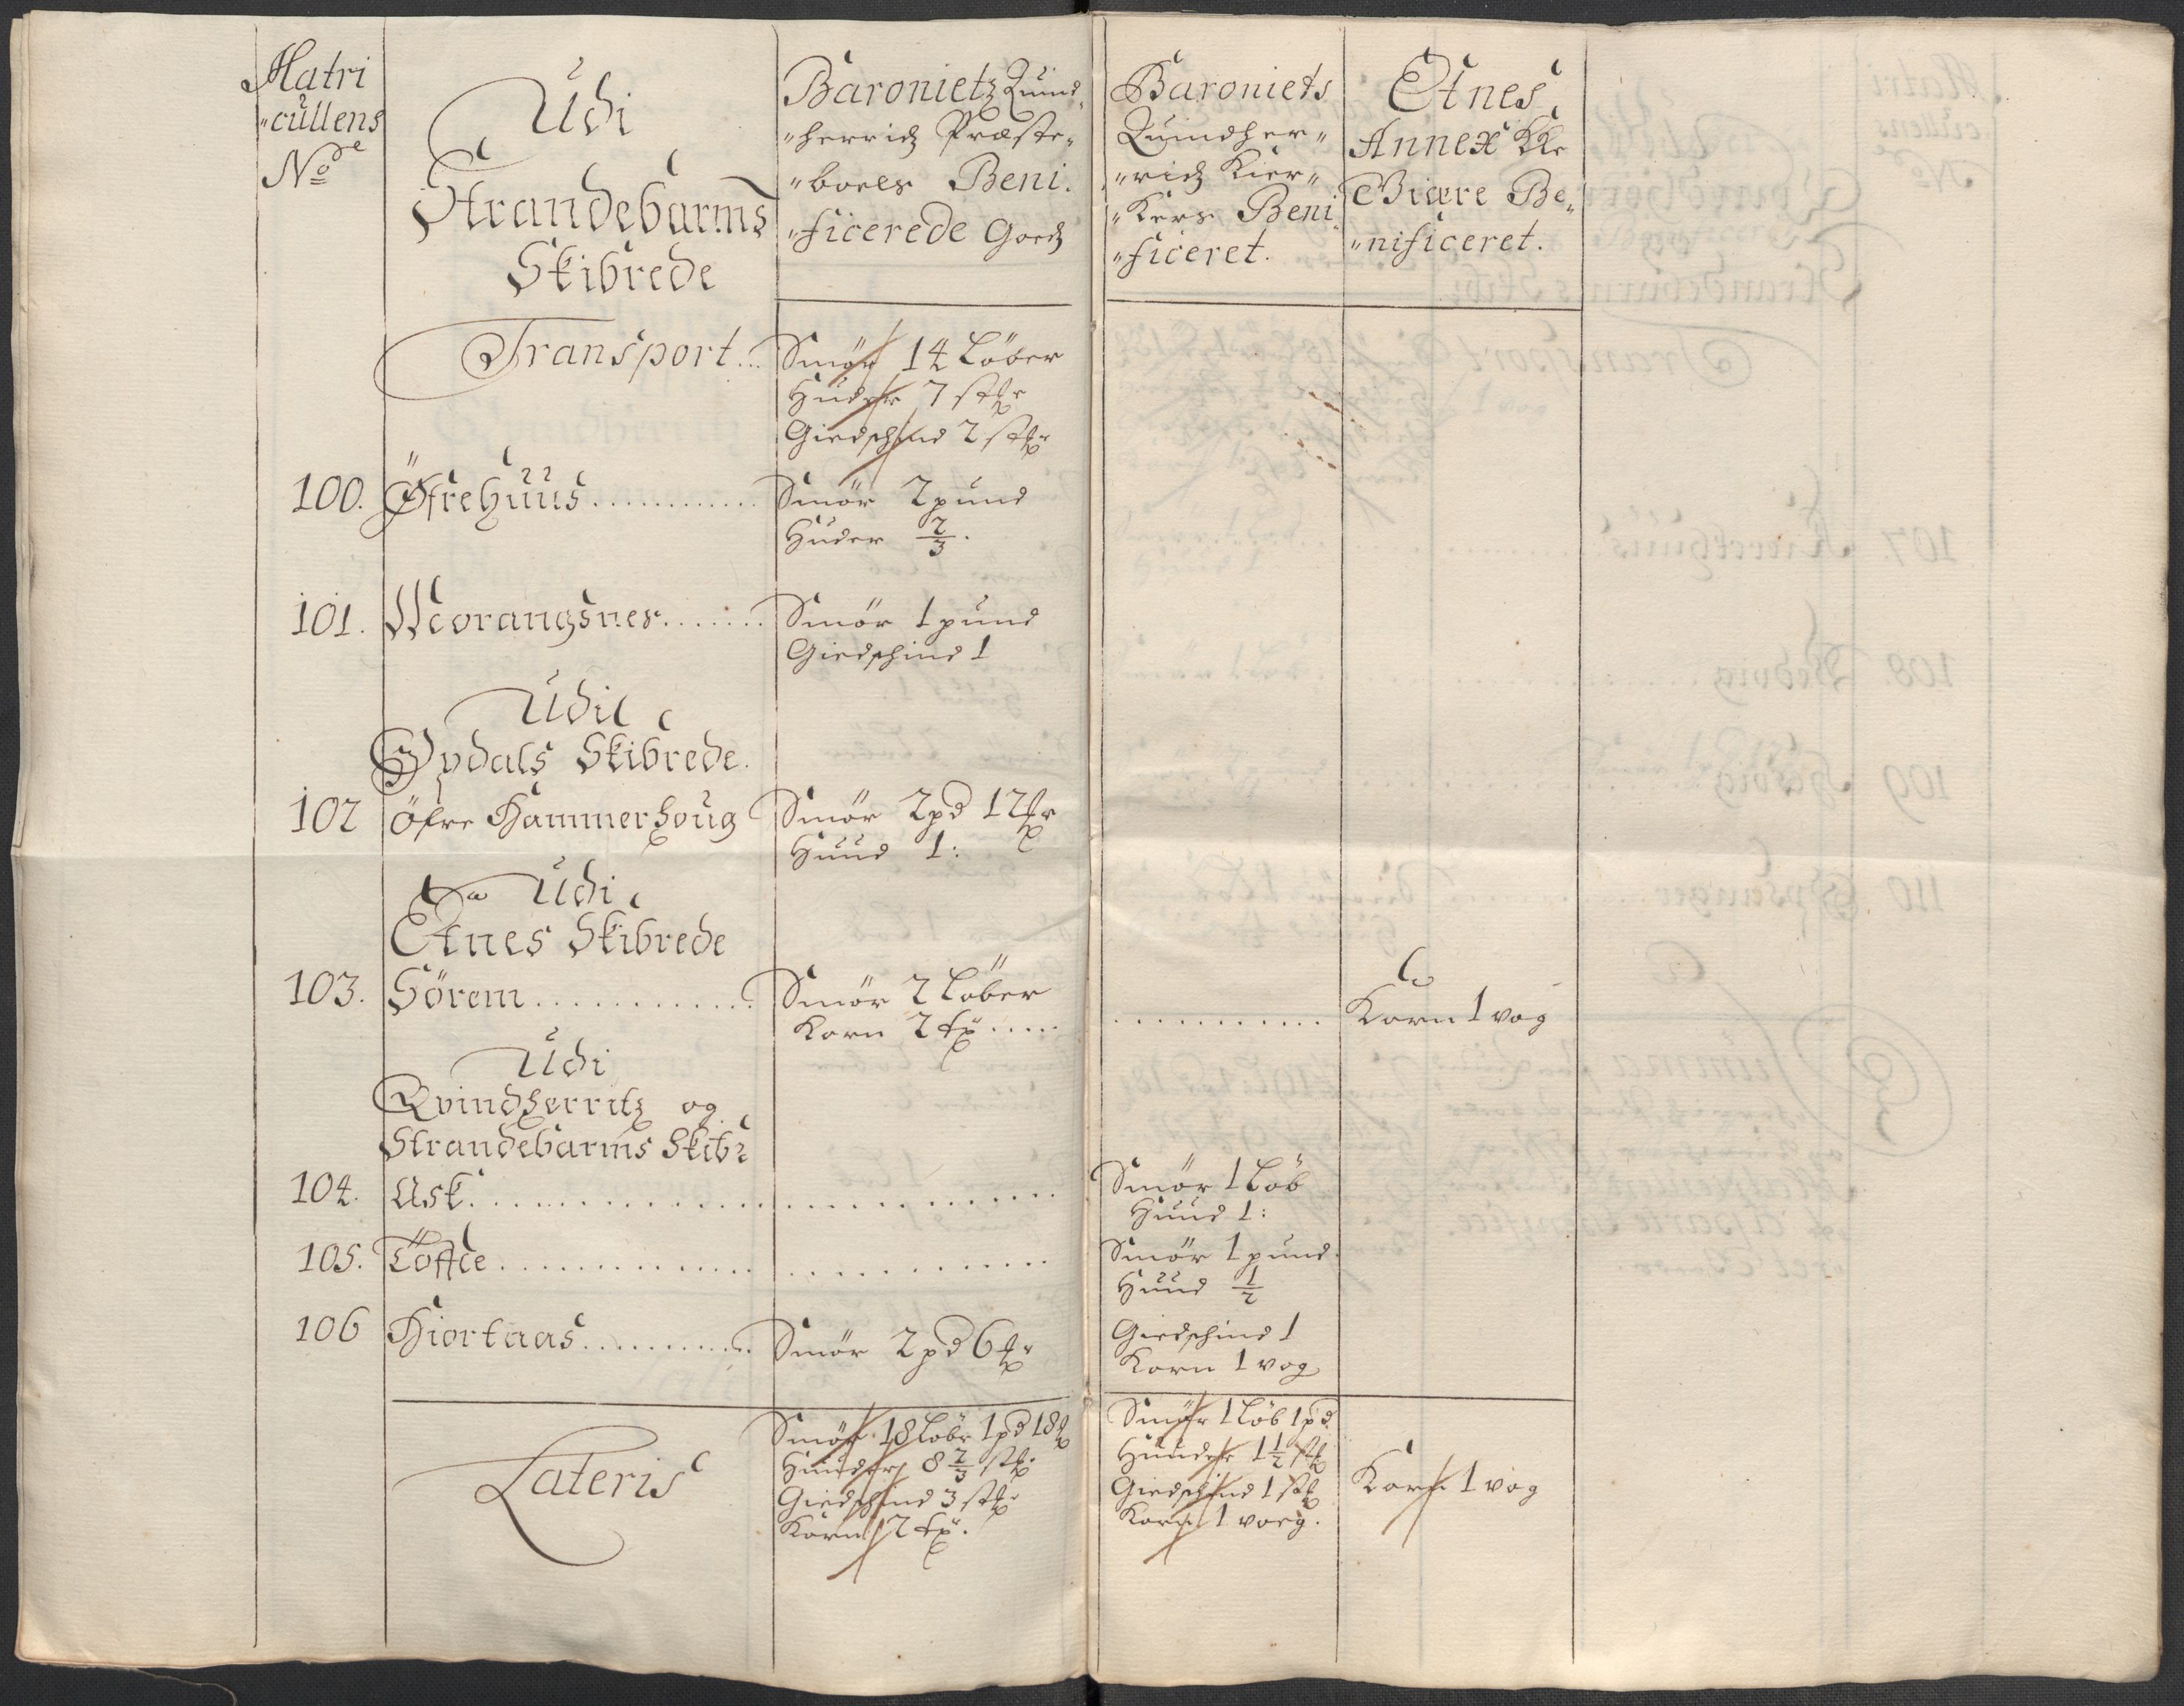 Matri
"cullens
No de
Udi
Strandebarms
Skibrede
Baronietz Quind"
"herridz Præste"
"boels Beni.
"ficerede Goedz
Baroniets
Quindher"
"ridz Kier"
"Kers Beni
"ficeret.
Etnes
Annex Kle
Giære Be"
"nificeret.
Transport... Smör 14 Löber
Huder 7 stkr
Giedschind 2 stkr
100. Øfrehuus............ Smör 2 pund
Huder 2/3.
101. Worangsnes....... Smör 1 pund
Giedschind 1
Udi
Opdals Skibrede.
102 Öfre Hammerhoug Smör 2 pd 12
Huud 1:
Udi
Etnes Skibrede
103. Sörem............ Smör 2 Löber
Korn 2 ..... ........... Korn 1 vog
Udi
Qvindherritz og
Strandebarms Skibr
104. Ask................................ Smör 1 Löb
Huud 1:
105. Tofte............................ Smör 1 pund.
Huud 1/2
106 Hiortaas............ Smör 2 pd 6 Giedschind 1
Korn 1 vog
Lateris
Smör 18 Löbr 1 pd 18
Huuder 8 2/3 stkr
Giedschind 3 stkr
Korn 2
Smör 1 Löb 1 pd
Huuder 1 1/2 stk
Giedschind 1 stk
Korn 1 voeg.
Korn 1 vog